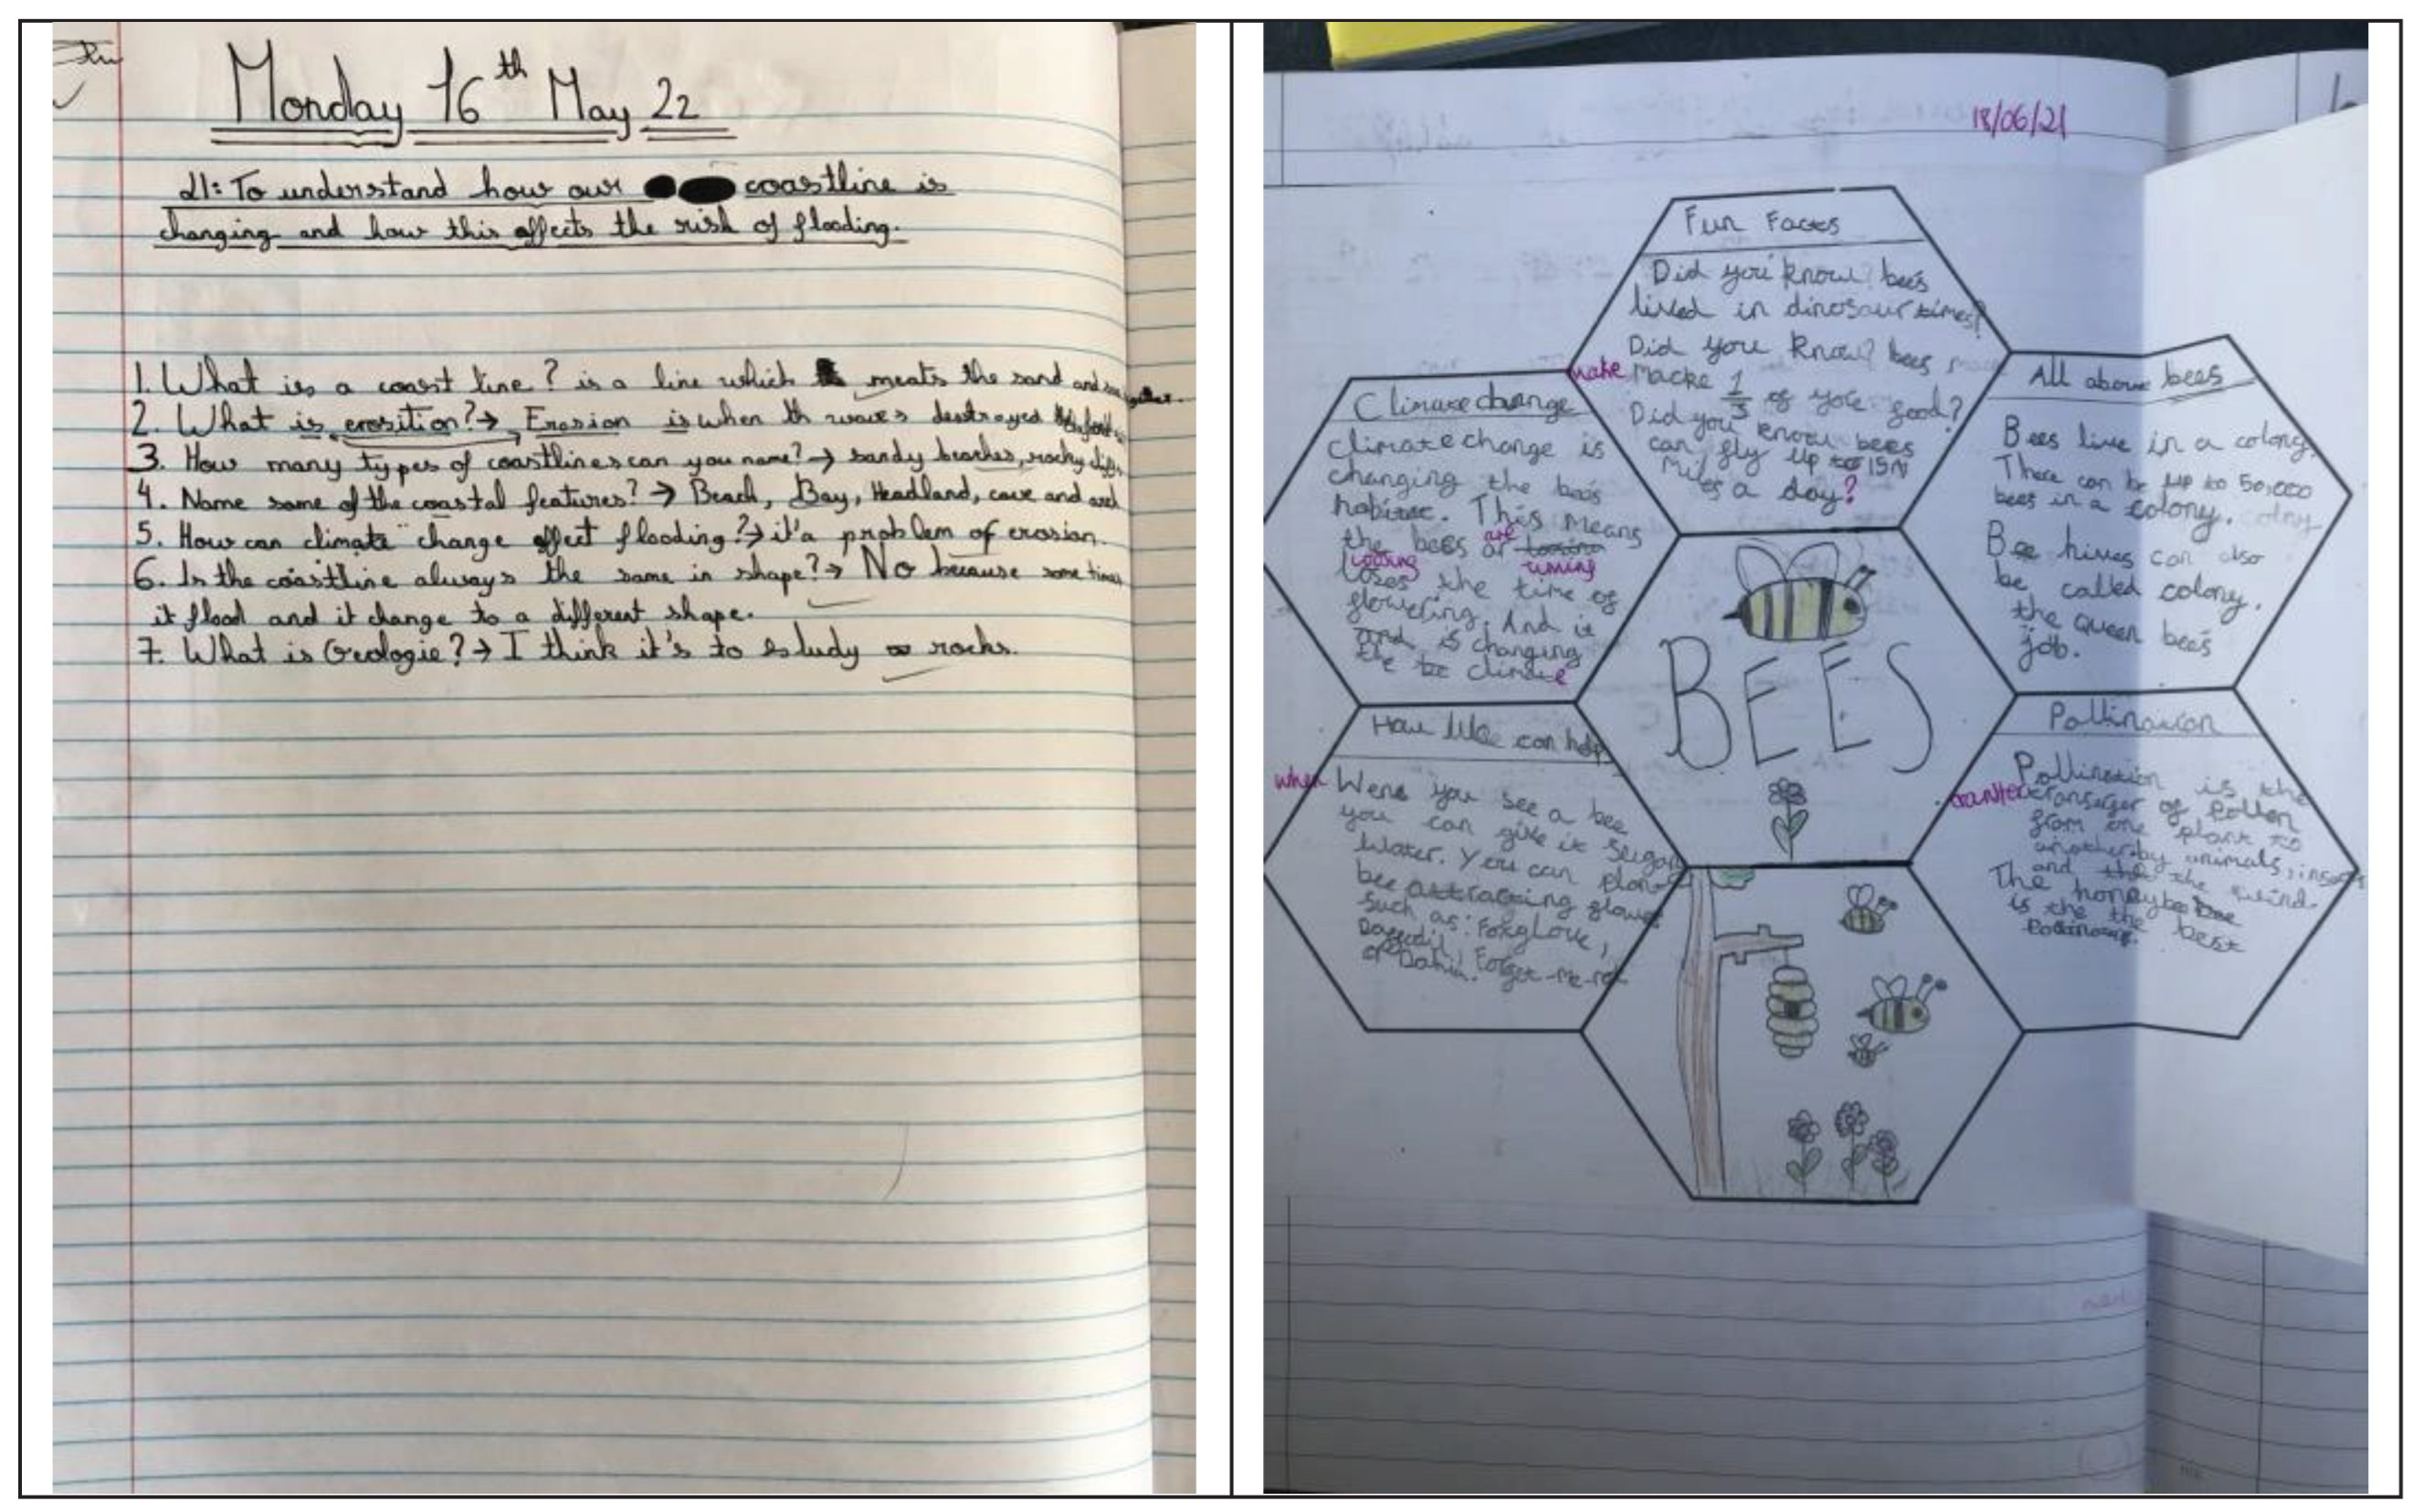 Monday 16th May 22
LI: To understand how our coastline is
changing and how this affects the risk of flooding.
1. What is a coast line? is a line which meats the sand and sea
2. What is erosition? → Erosion is when th waves destroyed
3. How many types of coastlines can you name? → sandy beaches, rocky cliffs,
4. Name some of the coastal features? → Beach, Bay, Headland, cave and arch
5. How can climate change affect flooding? → it'a problem of erosion.
6. Is the coastline always the same in shape? → No because some times
it flood and it change to a different shape.
7. What is Geologie? → I think it's to study rocks.
18/06/21
Fun Facts
Did you know? bees
lived in dinosaur times?
Did you know? bees
make macke 1/3 of yore food?
Did you know bees
can fly up to 15
Miles a day?
Climate change
Climate change is
changing the bees
habitat. This means
the bees ar are
loosing timing
loses the time of
flowering. And it
and is changing
the be climate
All about bees
Bees live in a colony.
There can be up to 50,000
bees in a colony. colny
Bee hives can also
be called colony.
the queen bees
job.
BEES
How We can help
when Wene you see a bee
you can give it Sugar
Water. You can plant
bee attracting
such as: Foxglove,
Daffodil, Forget-me-not
or Dahia.
Pollination
Pollination is the
transfer of Pollen
from one plant to
another by animals, insects
and the the wind.
The honey bee
is the the best